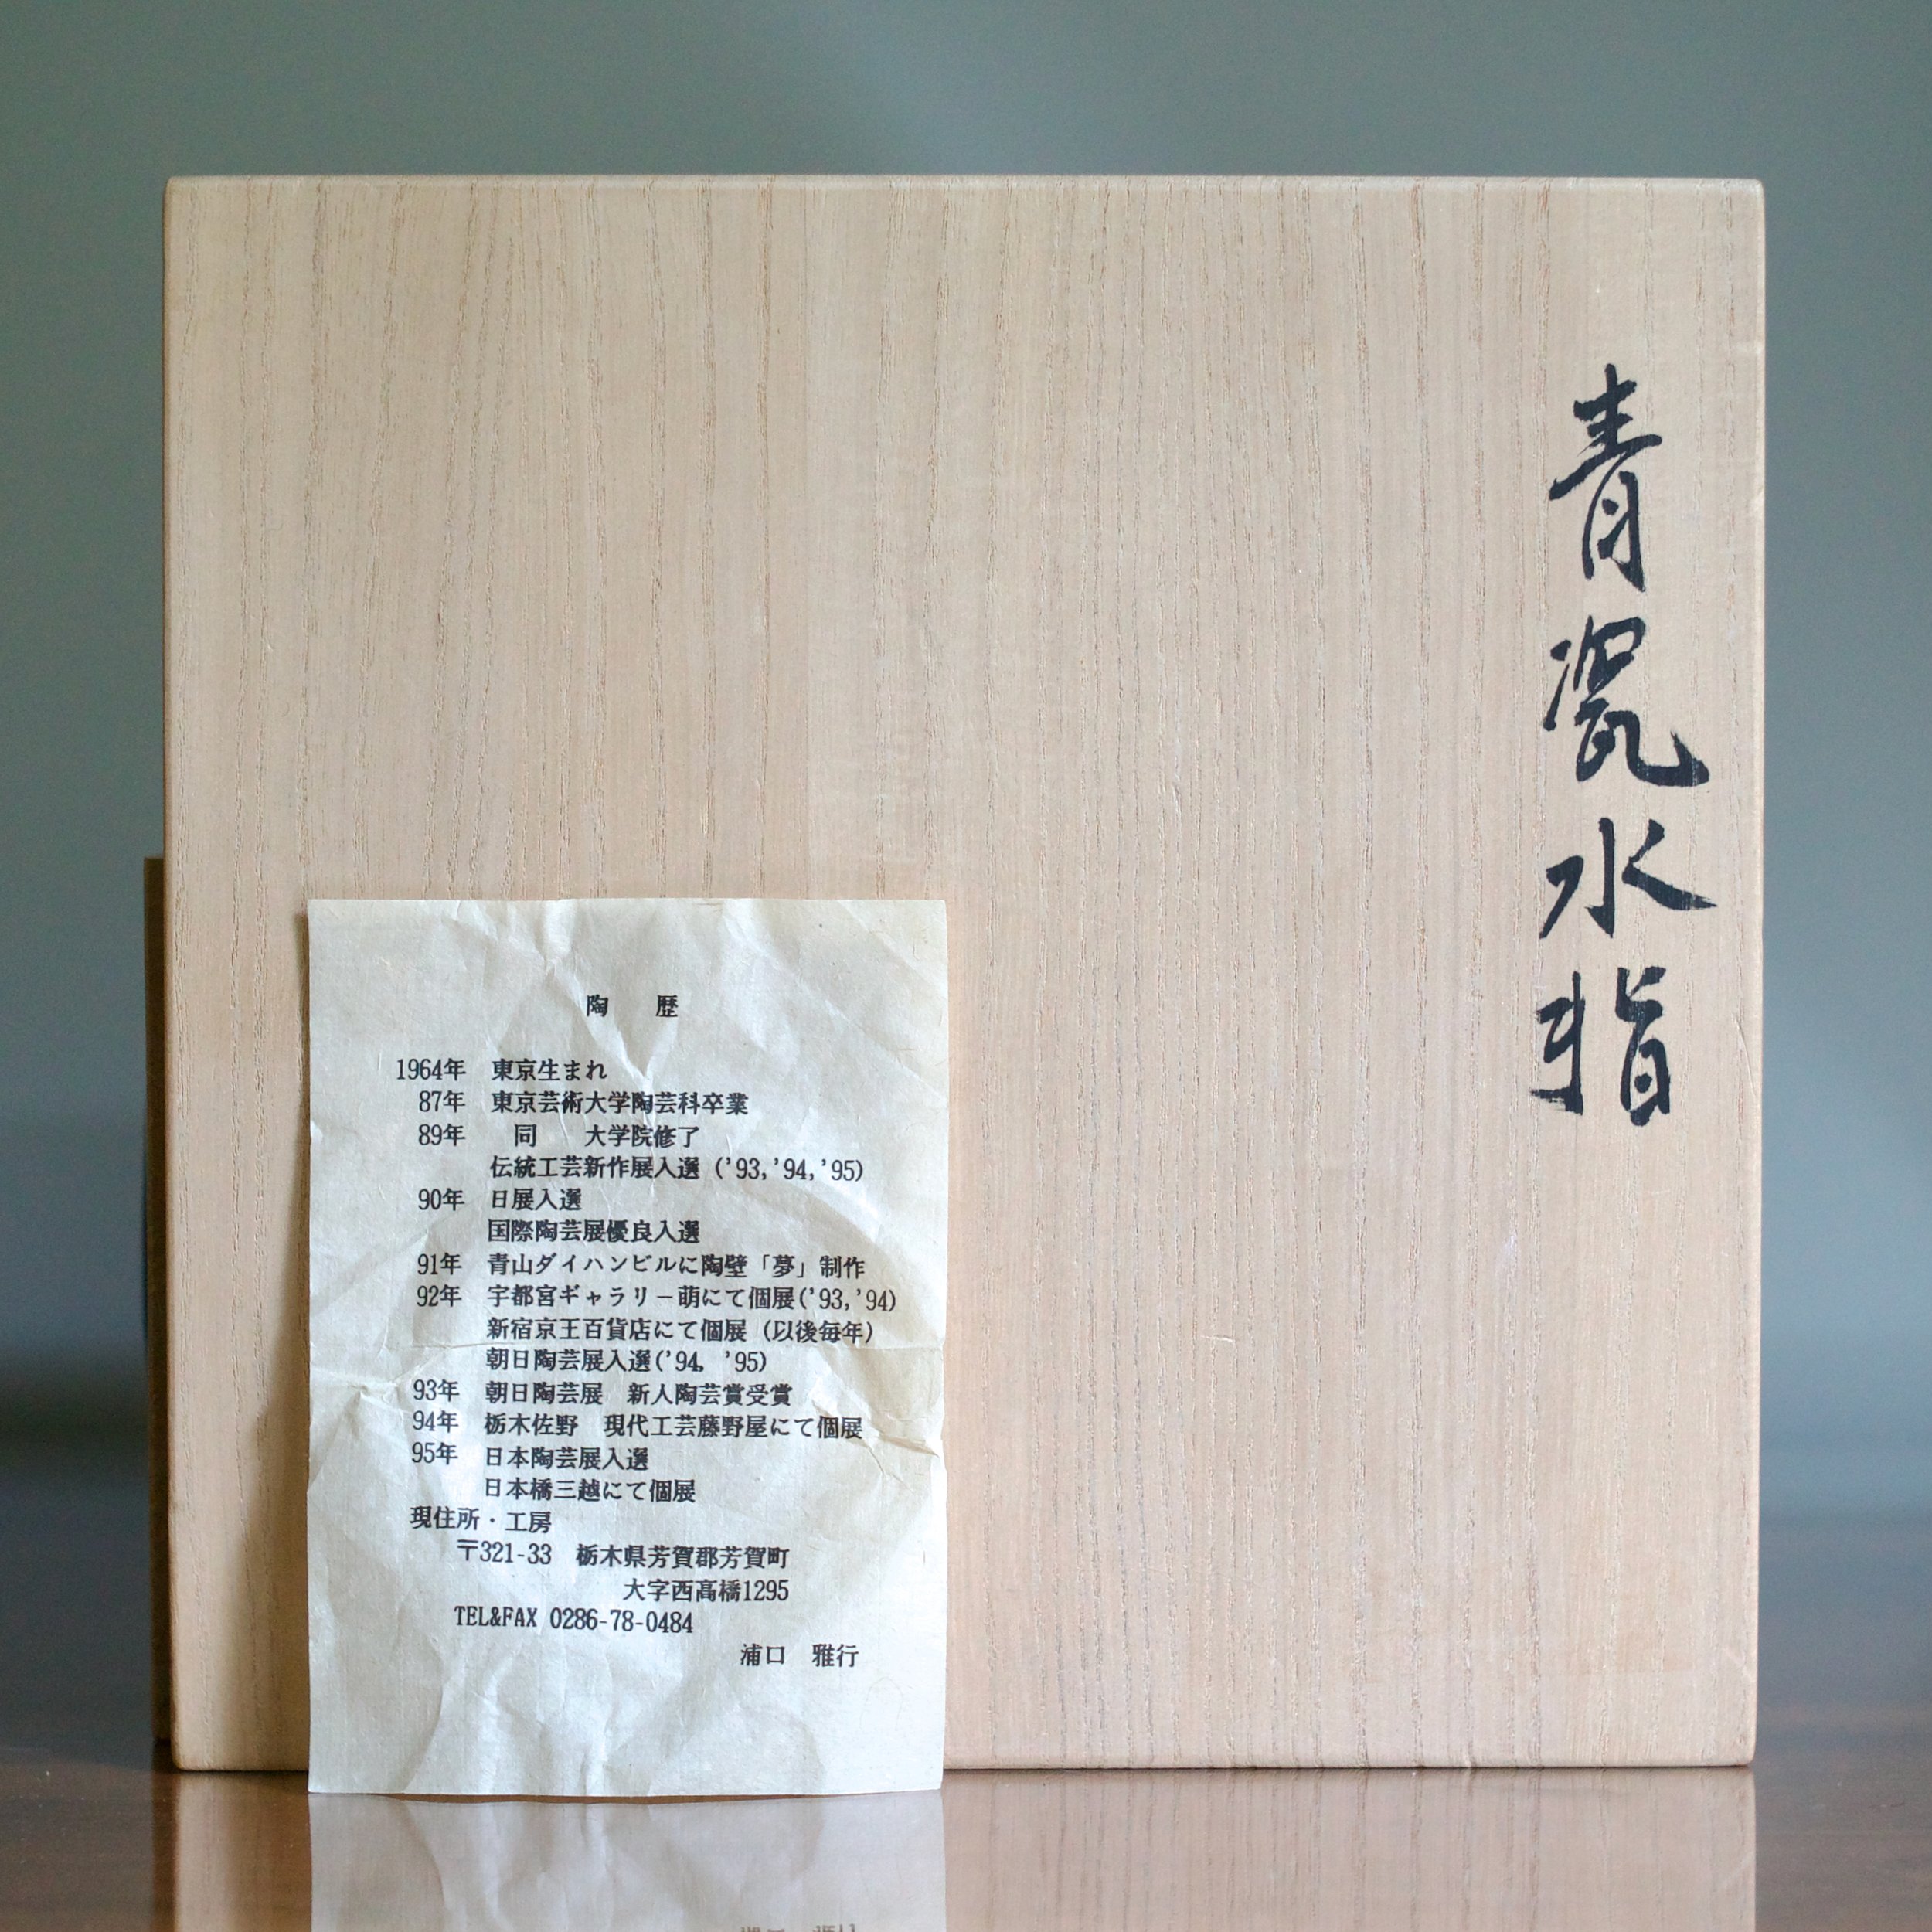 青瓷水指
陶　歴
1964年　東京生まれ
87年　東京芸術大学陶芸科卒業
89年　同　大学院修了
伝統工芸新作展入選（'93,'94,'95）
90年　日展入選
国際陶芸展優良入選
91年　青山ダイハンビルに陶壁「夢」制作
92年　宇都宮ギャラリー萌にて個展('93,'94)
新宿京王百貨店にて個展（以後毎年）
朝日陶芸展入選('94, '95)
93年　朝日陶芸展　新人陶芸賞受賞
94年　栃木佐野　現代工芸藤野屋にて個展
95年　日本陶芸展入選
日本橋三越にて個展
現住所・工房
〒321-33　栃木県芳賀郡芳賀町
大字西高橋1295
TEL&FAX 0286-78-0484
浦口　雅行